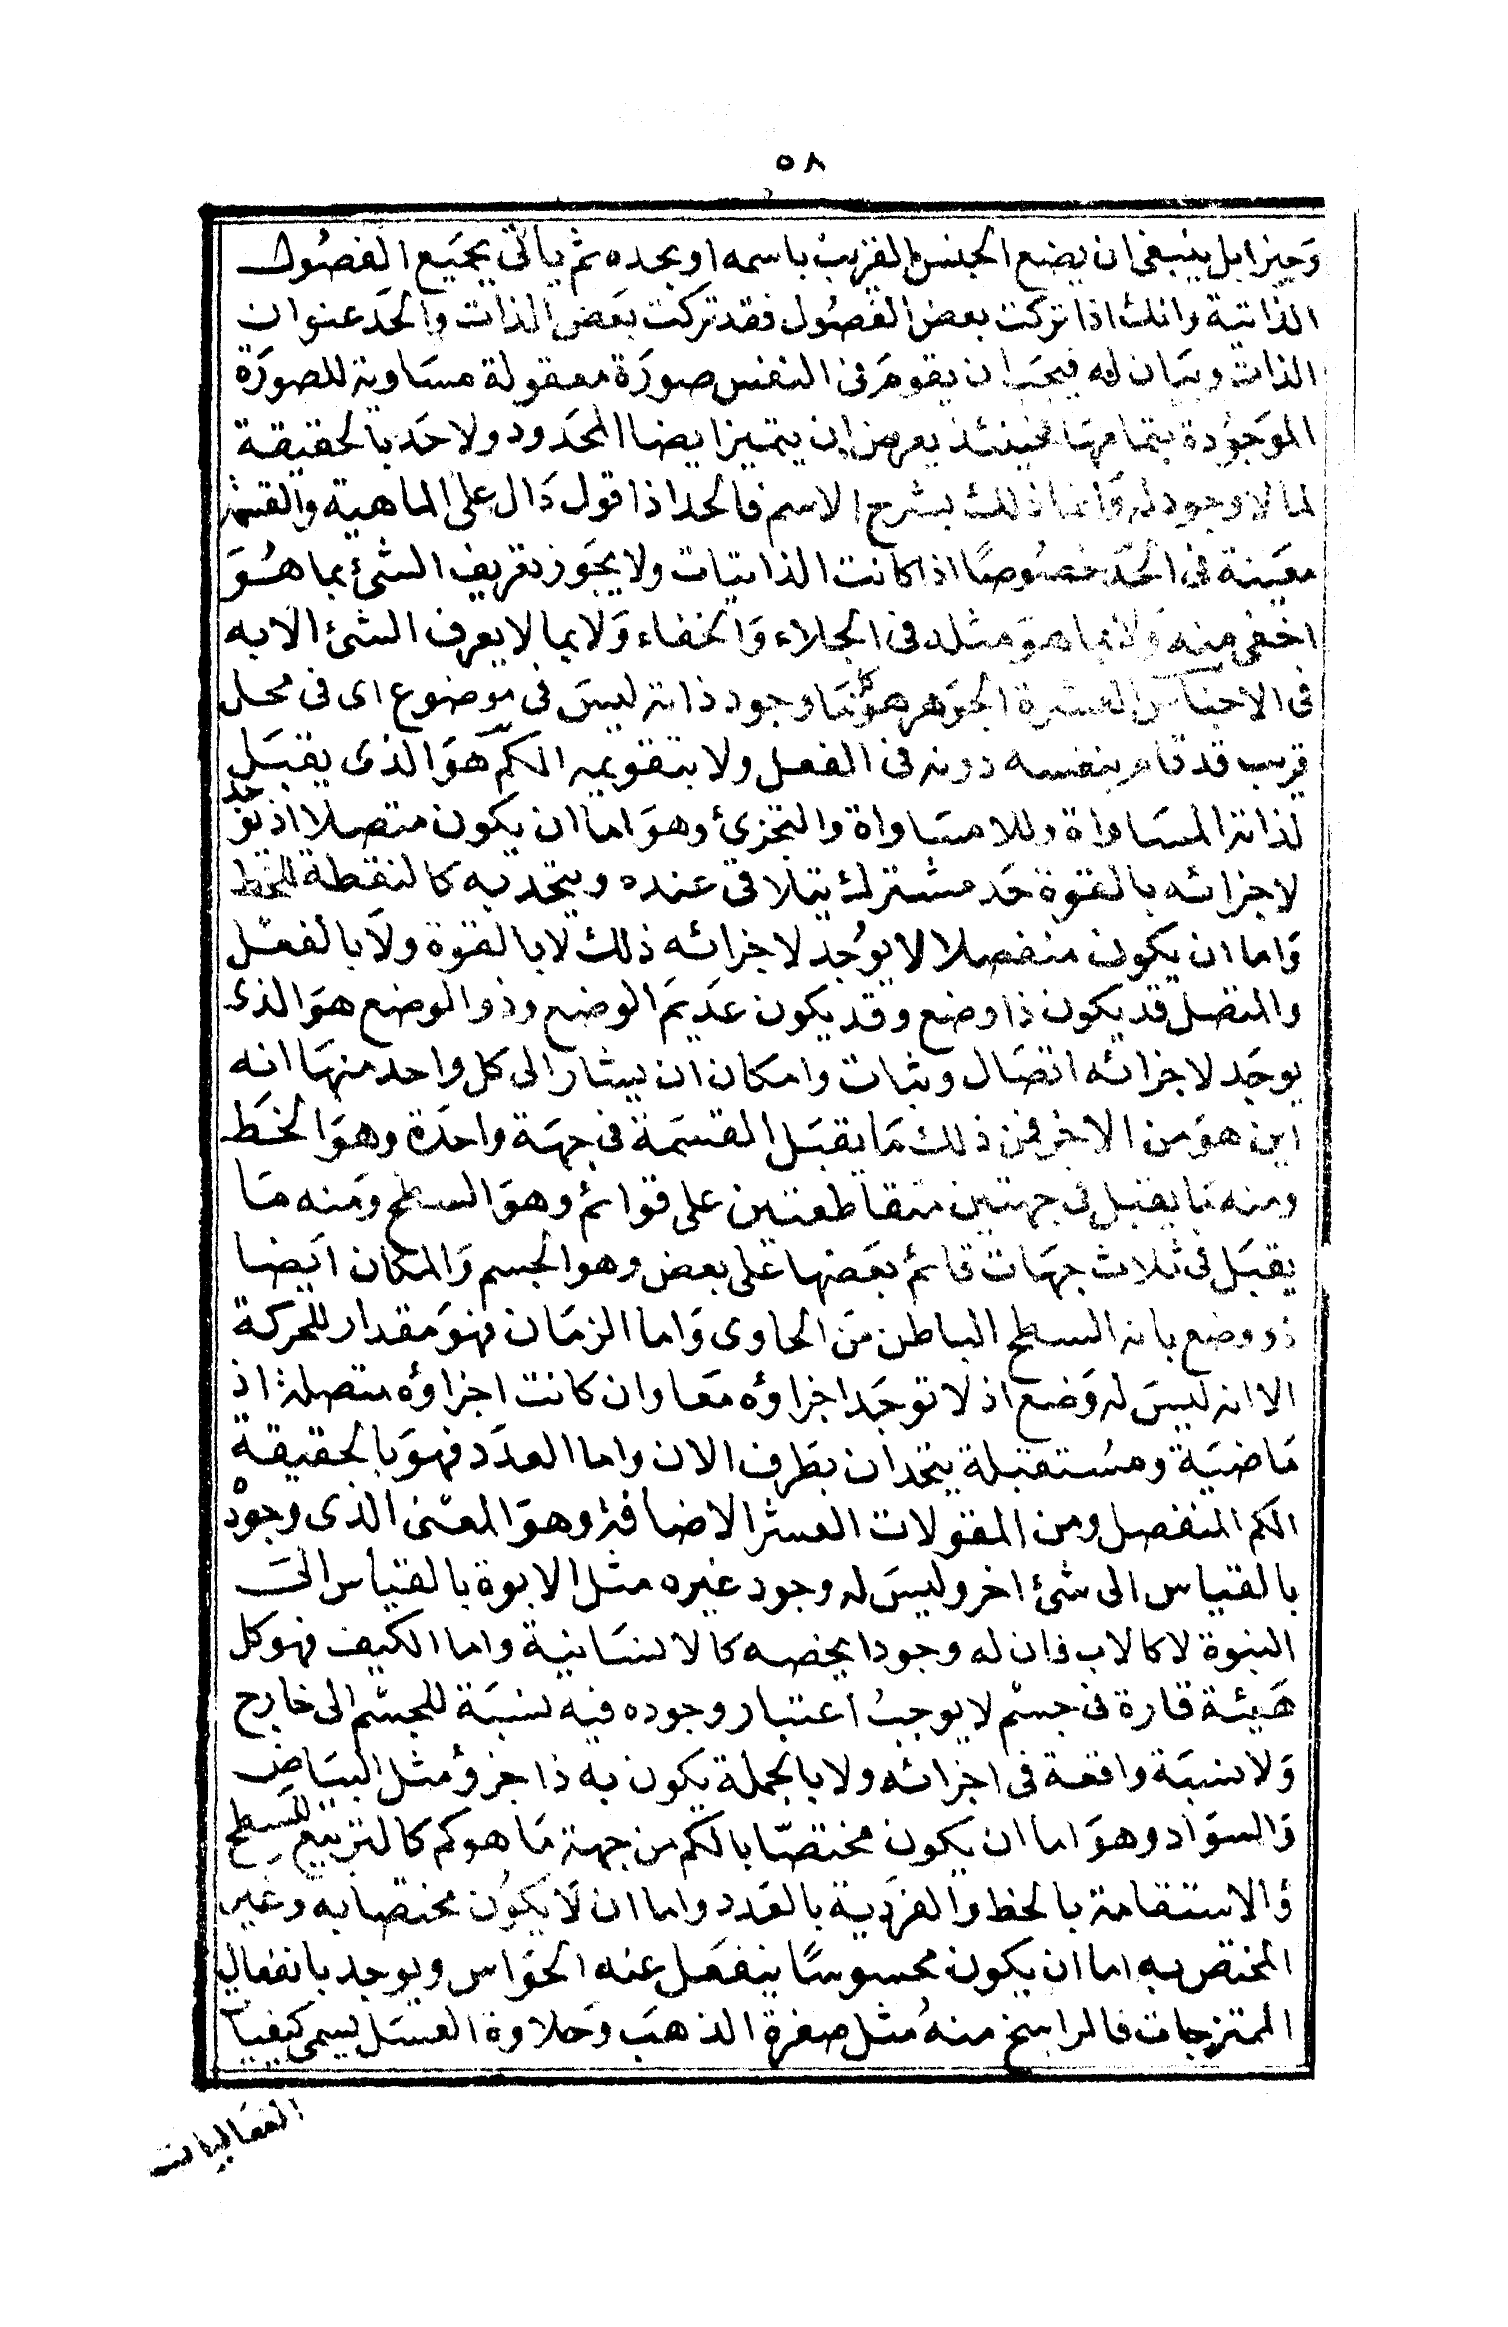 ٥٨
وَجيزا بل ينبغى ان يضع الجنس القريب باسمه او بحده ثم يأتى بجَميع الفصُول
الذاتية وانك اذا تركت بعض الفصُول فقد تركت بعَض الذات والحَد عنوان
الذات وبيَان له فيجَب ان يقومَ فى النفس صورَة معقولة مسَاوية للصورَة
الموَجوُدة بتمامهَا فحينئذ يعرض ان يتميز ايضا المحَدود ولا حَد بالحقيقة
لما لا وجود له وَانما ذلك بشرح الاسم فالحد اذا قول دَال على الماهية والقسمة
معَينة فى الحَد خصُوصًا اذا كانت الذاتيات ولا يجَوز تعريف الشئ بما هُوَ
اخفى منه وَلا بما هوَ مثله فى الجلاء وَالخفاء وَلا بما لا يعرف الشئ الا به
فى الاجناس العشرة الجوَهر هوَ كلما وجود ذاته ليسَ فى موَضوع اى فى محل
قريب قد قام بنفسه دونه فى الفعل ولا بتقويمه الكم هوَ الذى يقبَل
لذاته المسَاواة وللامسَاواة والتجزئ وهوَ اما ان يكون متصلا اذ يوجد
لاجزائه بالقوة حَد مشترك يتلاقى عنده ويتحد به كالنقطة للخط
وَاما ان يكون منفصلا لا يوُجد لاجزائه ذلك لا بالقوة ولَا بالفعْل
والمتصل قد يكون ذا وضع وقد يكون عَديمَ الوضع وذو الوضع هوَ الذى
يوجَد لاجزائه اتصَال وثبات وامكان ان يشار الى كل واحد منهَا انه
اين هوَ من الاخر فمن ذلك مَا يقبَل القسَمَة فى جهَة واحدَة وهوَ الخَط
ومنه مَا يقبل فى جهتين متقاطعتين على قوائم وهوَ السطح ومَنه مَا
يقبَل فى ثلاث جهَات قائم بعَضها على بعض وهو الجسم وَالمكان ايَضا
ذو وضع بانه السطح الباطن مَن الحاوى وَاما الزمَان فهوَ مقدار للحركة
الا انه ليسَ له وَضع اذ لا توجَد اجزاؤه معَا وان كانت اجزاؤه متصلة اذ
مَاضيَة ومسُتقبلة يتحدان بطَرف الان واما العدَد فهوَ بالحقيقة
الكم المنفصل ومن المقولات العشر الاضافة وهوَ المعْنى الذى وجودْه
بالقياس الى شئ اخر وليسَ له وجود غيره مثل الابوة بالقياس الىَ
البنوة لا كالاب فان له وجودا يخصه كالانسَانية واما الكيف فهو كل
هَيئة قارة فى جسْم لا يوجبُ اعتبار وجوده فيه نسَبَة للجسْم الى خارج
وَلا نسبَة واقعة فى اجزائه ولا بالجملة يكون به ذا جزؤ مثل البيَاض
وَالسوَاد وهوَ اما ان يكون مختصّا بالكم من جهة مَا هو كم كالتربيع للسطح
وَالاستقامة بالخط والفرَدية بالعَدد واما ان لَا يكوُن مختصا به وغير
المختص به اما ان يكون محسوسًا ينفعَل عنه الحوَاس ويوجد بانفعال
الممتزجات فالراسخ منهُ مُثل صفرة الذهبَ وَحلاوة العسَل يسمى كيفيات
انفعَاليات